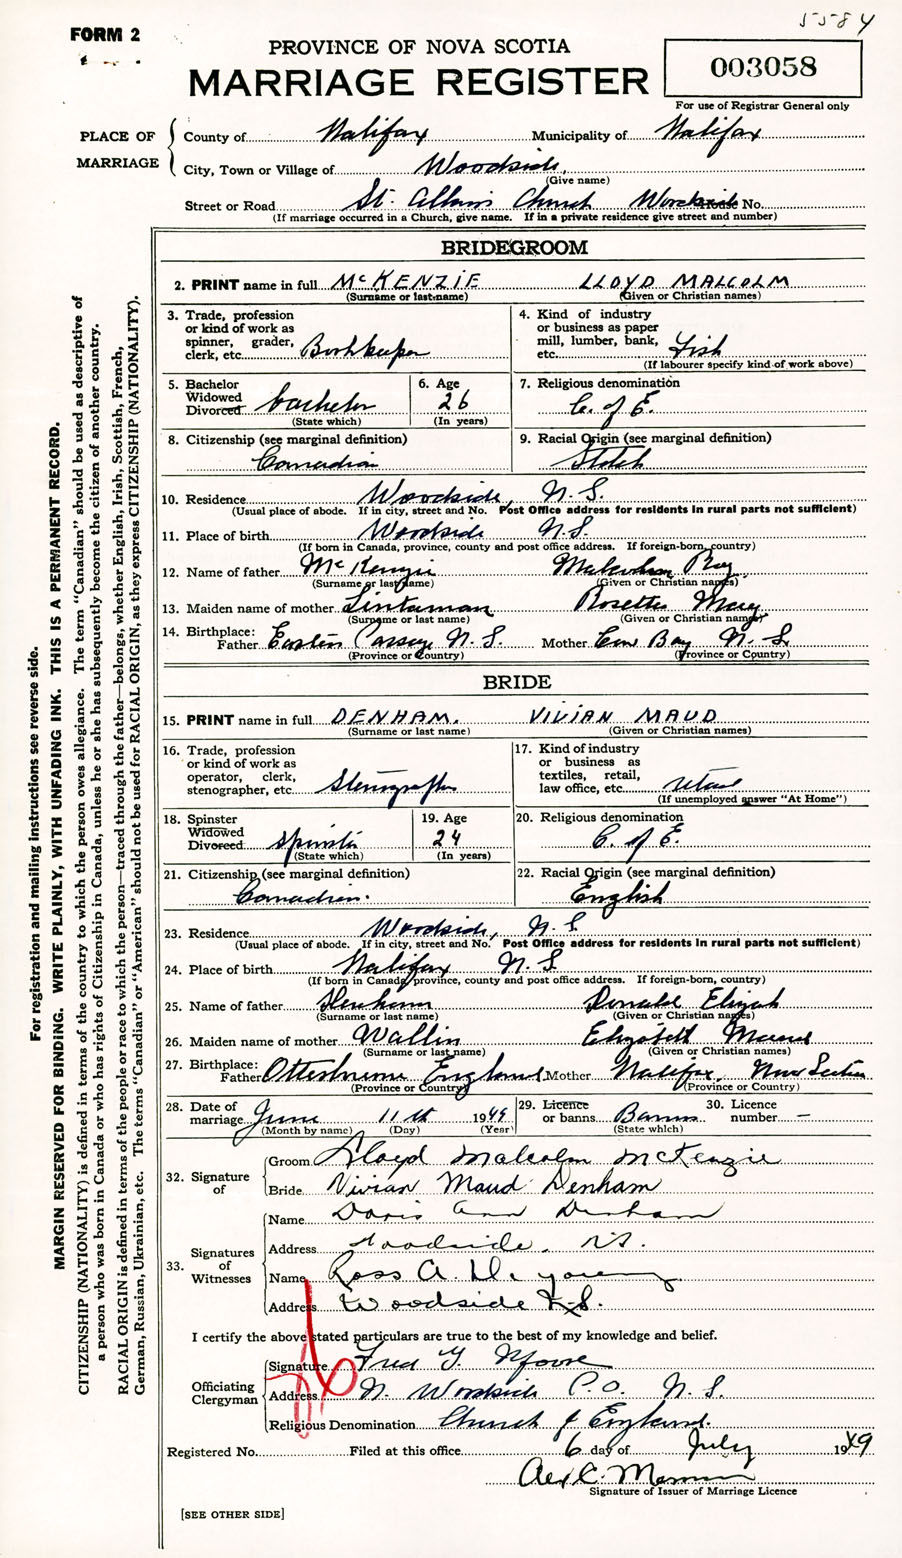 5584
FORM 2
PROVINCE OF NOVA SCOTIA
MARRIAGE REGISTER
003058
For use of Registrar General only
PLACE OF MARRIAGE
County of Halifax Municipality of Halifax
City, Town or Village of Woodside,
(Give name)
Street or Road St. Albans Church Woodside House No.
(If marriage occurred in a Church, give name. If in a private residence give street and number)
BRIDEGROOM
2. PRINT name in full McKENZIE LLOYD MALCOLM
(Surname or last name) (Given or Christian names)
3. Trade, profession or kind of work as spinner, grader, clerk, etc. Bookkeeper
4. Kind of industry or business as paper mill, lumber, bank, etc. Fish
(If labourer specify kind of work above)
5. Bachelor Widowed Divorced bachelor
(State which)
6. Age 26
(In years)
7. Religious denomination C. of E.
8. Citizenship (see marginal definition) Canadian
9. Racial Origin (see marginal definition) Scotch
10. Residence Woodside, N.S.
(Usual place of abode. If in city, street and No. Post Office address for residents in rural parts not sufficient)
11. Place of birth Woodside N.S.
(If born in Canada, province, county and post office address. If foreign-born, country)
12. Name of father McKenzie Malcolm Roy
(Surname or last name) (Given or Christian names)
13. Maiden name of mother Rosetta Mary
(Surname or last name) (Given or Christian names)
14. Birthplace: Father Eastern Passage N.S. Mother Cow Bay N.S.
(Province or Country) (Province or Country)
BRIDE
15. PRINT name in full DENHAM. VIVIAN MAUD
(Surname or last name) (Given or Christian names)
16. Trade, profession or kind of work as operator, clerk, stenographer, etc. Stenographer
17. Kind of industry or business as textiles, retail, law office, etc. retail
(If unemployed answer "At Home")
18. Spinster Widowed Divorced Spinster
(State which)
19. Age 24
(In years)
20. Religious denomination C. of E.
21. Citizenship (see marginal definition) Canadian.
22. Racial Origin (see marginal definition) English
23. Residence Woodside, N.S.
(Usual place of abode. If in city, street and No. Post Office address for residents in rural parts not sufficient)
24. Place of birth Halifax N.S.
(If born in Canada, province, county and post office address. If foreign-born, country)
25. Name of father Denham Donald Elijah
(Surname or last name) (Given or Christian names)
26. Maiden name of mother Wallin Elizabeth Maud
(Surname or last name) (Given or Christian names)
27. Birthplace: Father England Mother Halifax, Nova Scotia
(Province or Country) (Province or Country)
28. Date of marriage June 11th 1949
(Month by name) (Day) (Year)
29. Licence or banns Banns
(State which)
30. Licence number -
32. Signature of
Groom Lloyd Malcolm McKenzie
Bride Vivian Maud Denham
33. Signatures of Witnesses
Name Doris Ann Denham
Address Woodside, N.S.
Name Ross A. De young
Address Woodside N.S.
I certify the above stated particulars are true to the best of my knowledge and belief.
Officiating Clergyman
Signature Fred Y. Moore
Address N. Woodside P.O. N.S.
Religious Denomination Church of England.
Registered No. Filed at this office 6 day of July 1949
Alex C.
Signature of Issuer of Marriage Licence
[SEE OTHER SIDE]
For registration and mailing instructions see reverse side.
MARGIN RESERVED FOR BINDING. WRITE PLAINLY, WITH UNFADING INK. THIS IS A PERMANENT RECORD.
CITIZENSHIP (NATIONALITY) is defined in terms of the country to which the person owes allegiance. The term "Canadian" should be used as descriptive of
a person who was born in Canada or who has rights of Citizenship in Canada, unless he or she has subsequently become the citizen of another country.
RACIAL ORIGIN is defined in terms of the people or race to which the person—traced through the father—belongs, whether English, Irish, Scottish, French,
German, Russian, Ukrainian, etc. The terms "Canadian" or "American" should not be used for RACIAL ORIGIN, as they express CITIZENSHIP (NATIONALITY).